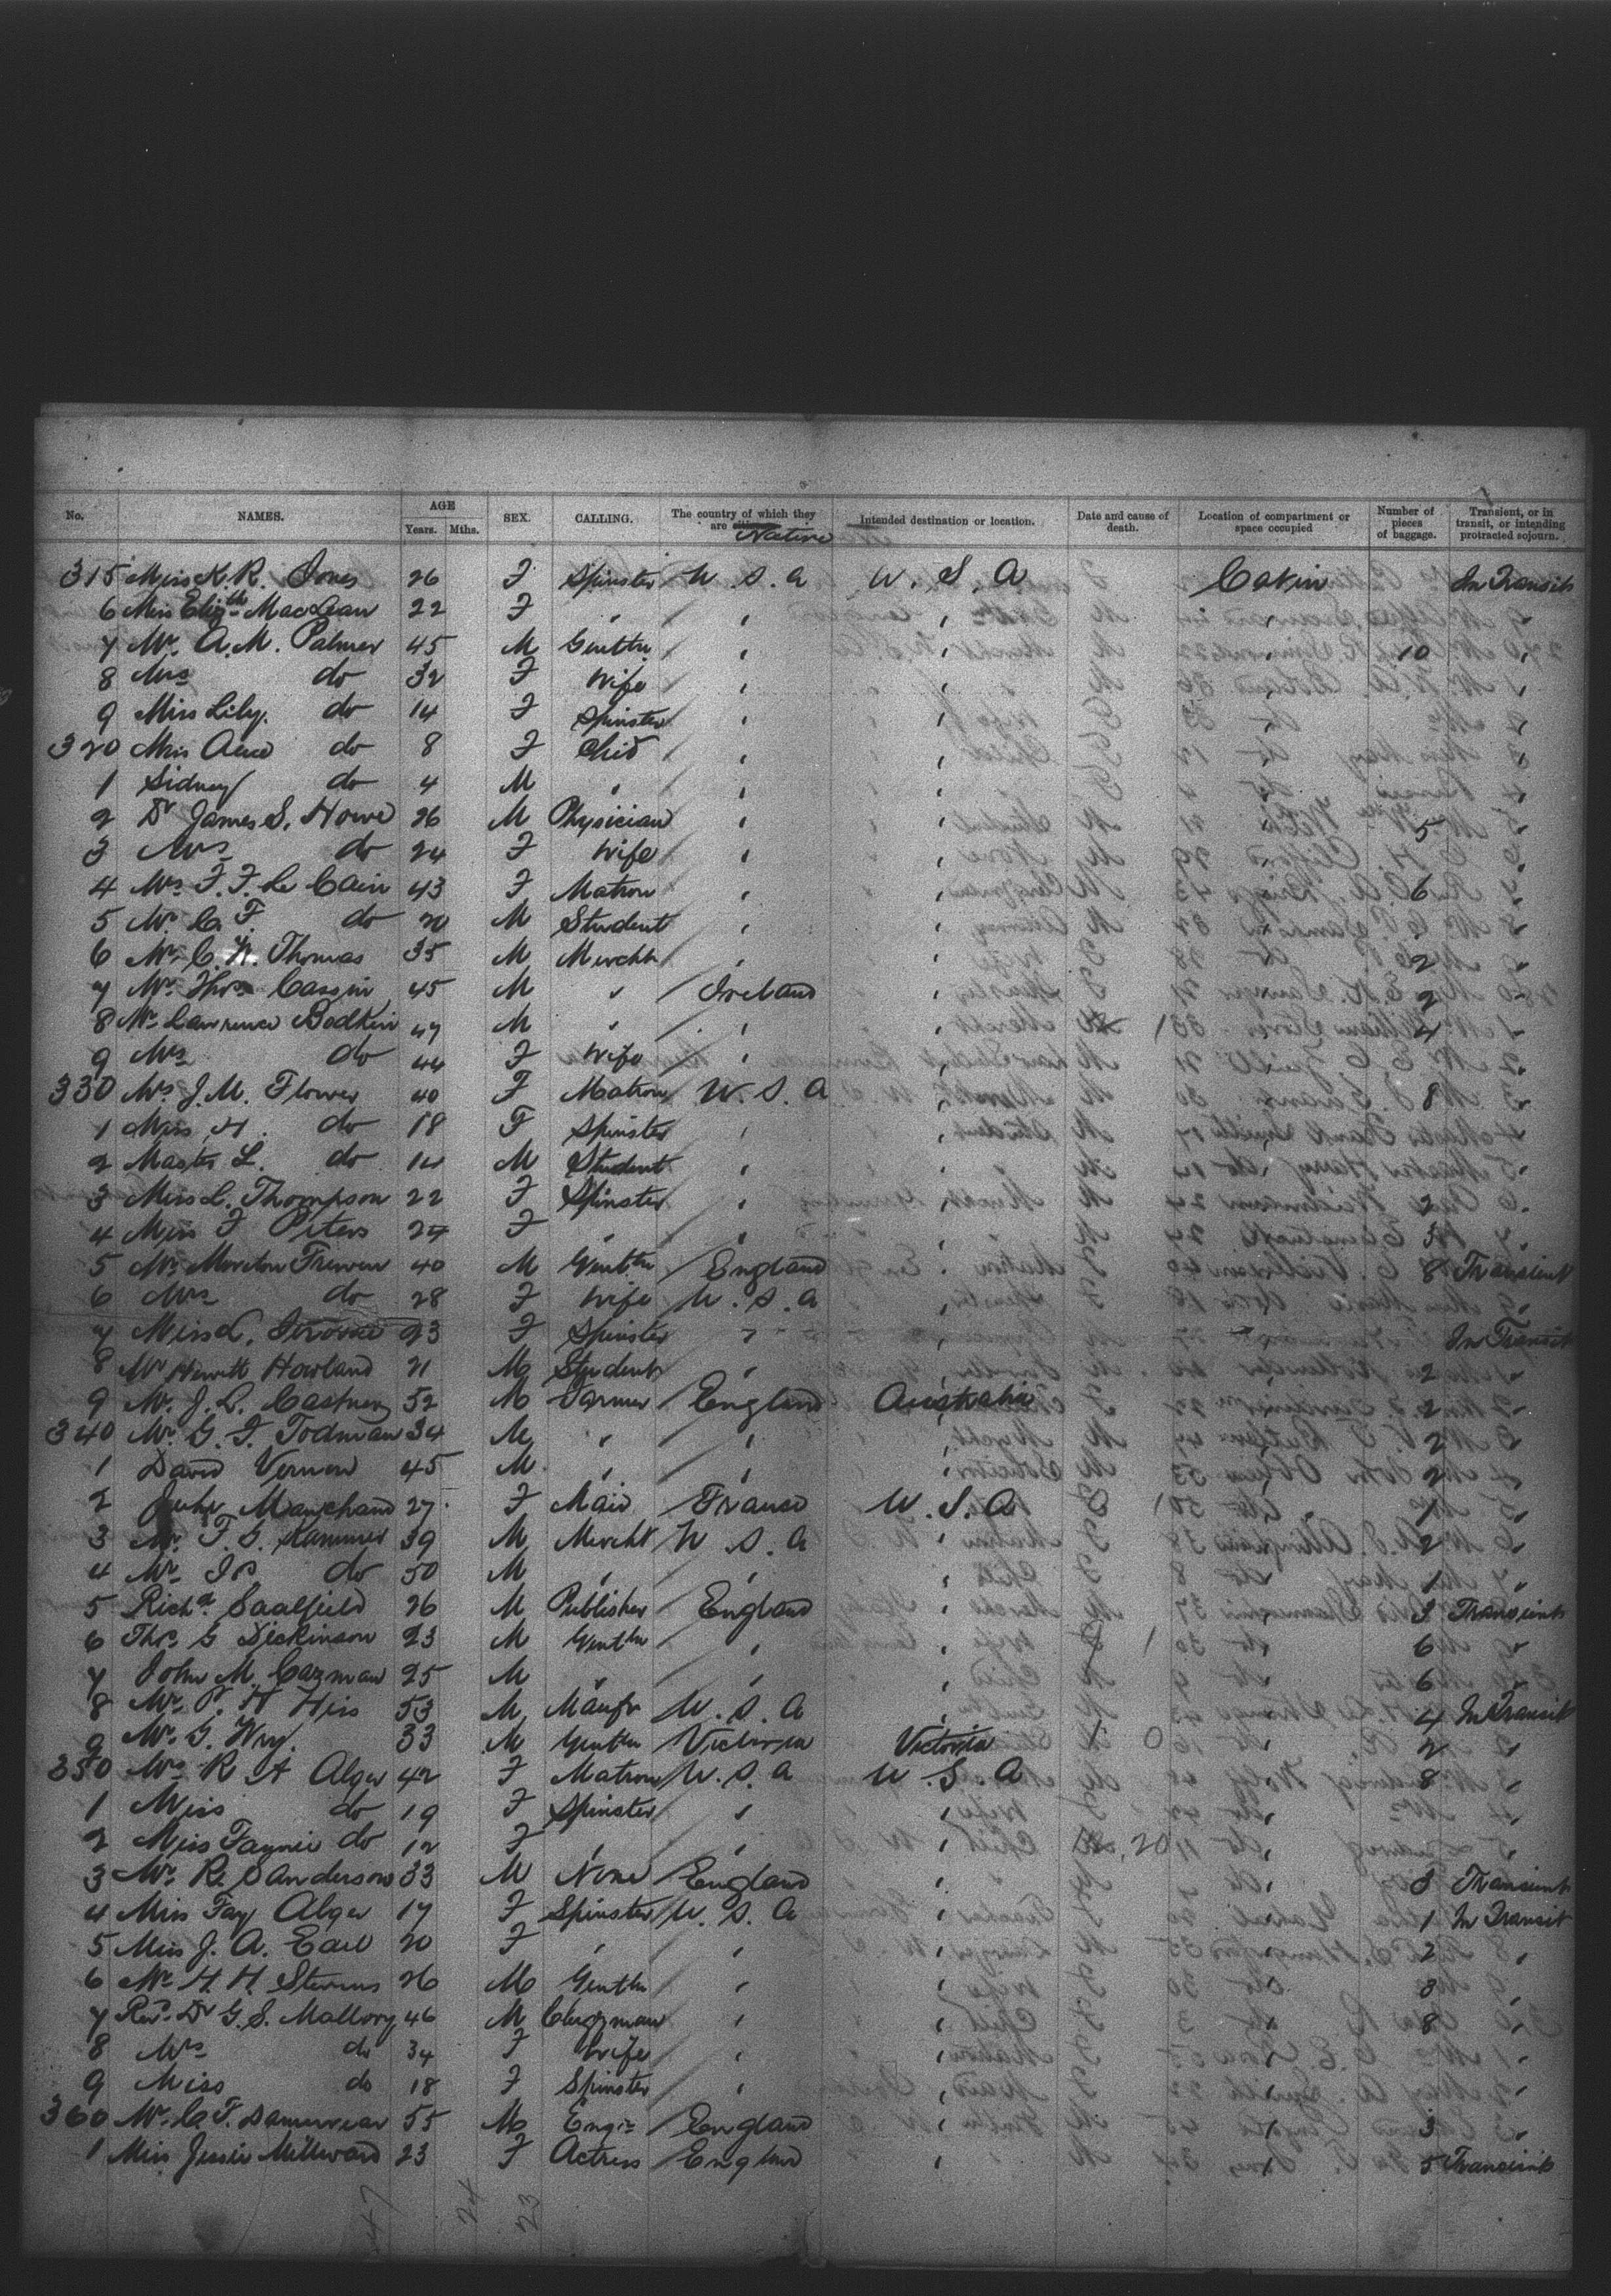 No. NAMES. AGE Years. Mths. SEX. CALLING. The country of which they are Native Intended destination or location. Date and cause of death. Location of compartment or space occupied Number of pieces of baggage. Transient, or in transit, or intending protracted sojourn.
315 Miss K. R. Jones 26 F Spinster U. S. A U. S. A Cabin In Transit
6 Miss Elizth MacLean 22 F " " " " "
7 Mr. A. M. Palmer 45 M Gentln " " " 10 "
8 Mrs do 32 F Wife " " "
9 Miss Lily. do 14 F Spinster " " "
320 Miss Alice do 8 F Child " " "
1 Sidney do 4 M " " " "
2 Dr James S. Howe 26 M Physician " " 5 "
3 Mrs do 24 F Wife " " "
4 Mrs F. F. Le Cain 43 F Matron " " 6 "
5 Mr. C. F. do 20 M Student " " "
6 Mr. C. Thomas 35 M Mercht " " 2 "
7 Mr. Thos. Cassin 45 M " Ireland " 2 "
8 Mr Lawrence Bodkin 47 M " " " 4 "
9 Mrs do 44 F Wife " " "
330 Mrs J. M. Flower 40 F Matron U. S. A " 8 "
1 Miss H. do 18 F Spinster " " "
2 Master L. do 14 M Student " " "
3 Miss L. Thompson 22 F Spinster " " 2 "
4 Miss F Peters 24 F " " " 3 "
5 Mr. Moreton Frewen 40 M Gentln England " 8 Transient
6 Mrs do 28 F Wife U. S. A " "
7 Miss L. Jerome 23 F Spinster " " In Transit
8 Mr Hewitt Howland 21 M Student " " 2 "
9 Mr. J. L. 52 M Farmer England Australia 2 "
340 Mr. G. F. Todman 34 M " " " 2 "
1 David Vernon 45 M " " " 2 "
2 Marchand 27 F Maid France U. S. A 1 "
3 Mr. F. G. 39 M Mercht U. S. A " 2 "
4 Mr. Js do 50 M " " " 1 "
5 Richd. Saalfield 26 M Publisher England " 3 Transient
6 Thos. G Dickinson 23 M Gentln " " 6 "
7 John M. Cazman 25 M " " " 6 "
8 Mr. P. H Hiss 53 M Manfr U. S. A " 4 In Transit
9 Mr. G. Wry. 33 M Gentln Victoria Victoria 2 "
350 Mrs R A Alger 42 F Matron U. S. A U. S. A 8 "
1 Miss do 19 F Spinster " " "
2 Miss Fannie do 12 F " " " "
3 Mr. R. Sanderson 33 M None England " 3 Transient
4 Miss Fay Alger 17 F Spinster U. S. A " 1 In Transit
5 Miss J. A. Earl 20 F " " " 2 "
6 Mr H. H. Stevens 26 M Gentln " " 3 "
7 Rev. Dr G. S. Mallory 46 M Clergyman " " 8 "
8 Mrs do 34 F Wife " " "
9 Miss do 18 F Spinster " " "
360 Mr. C. F. 55 M Engr England " 3 "
1 Miss Jessie Millward 23 F Actress England " 5 Transient
47 24 23